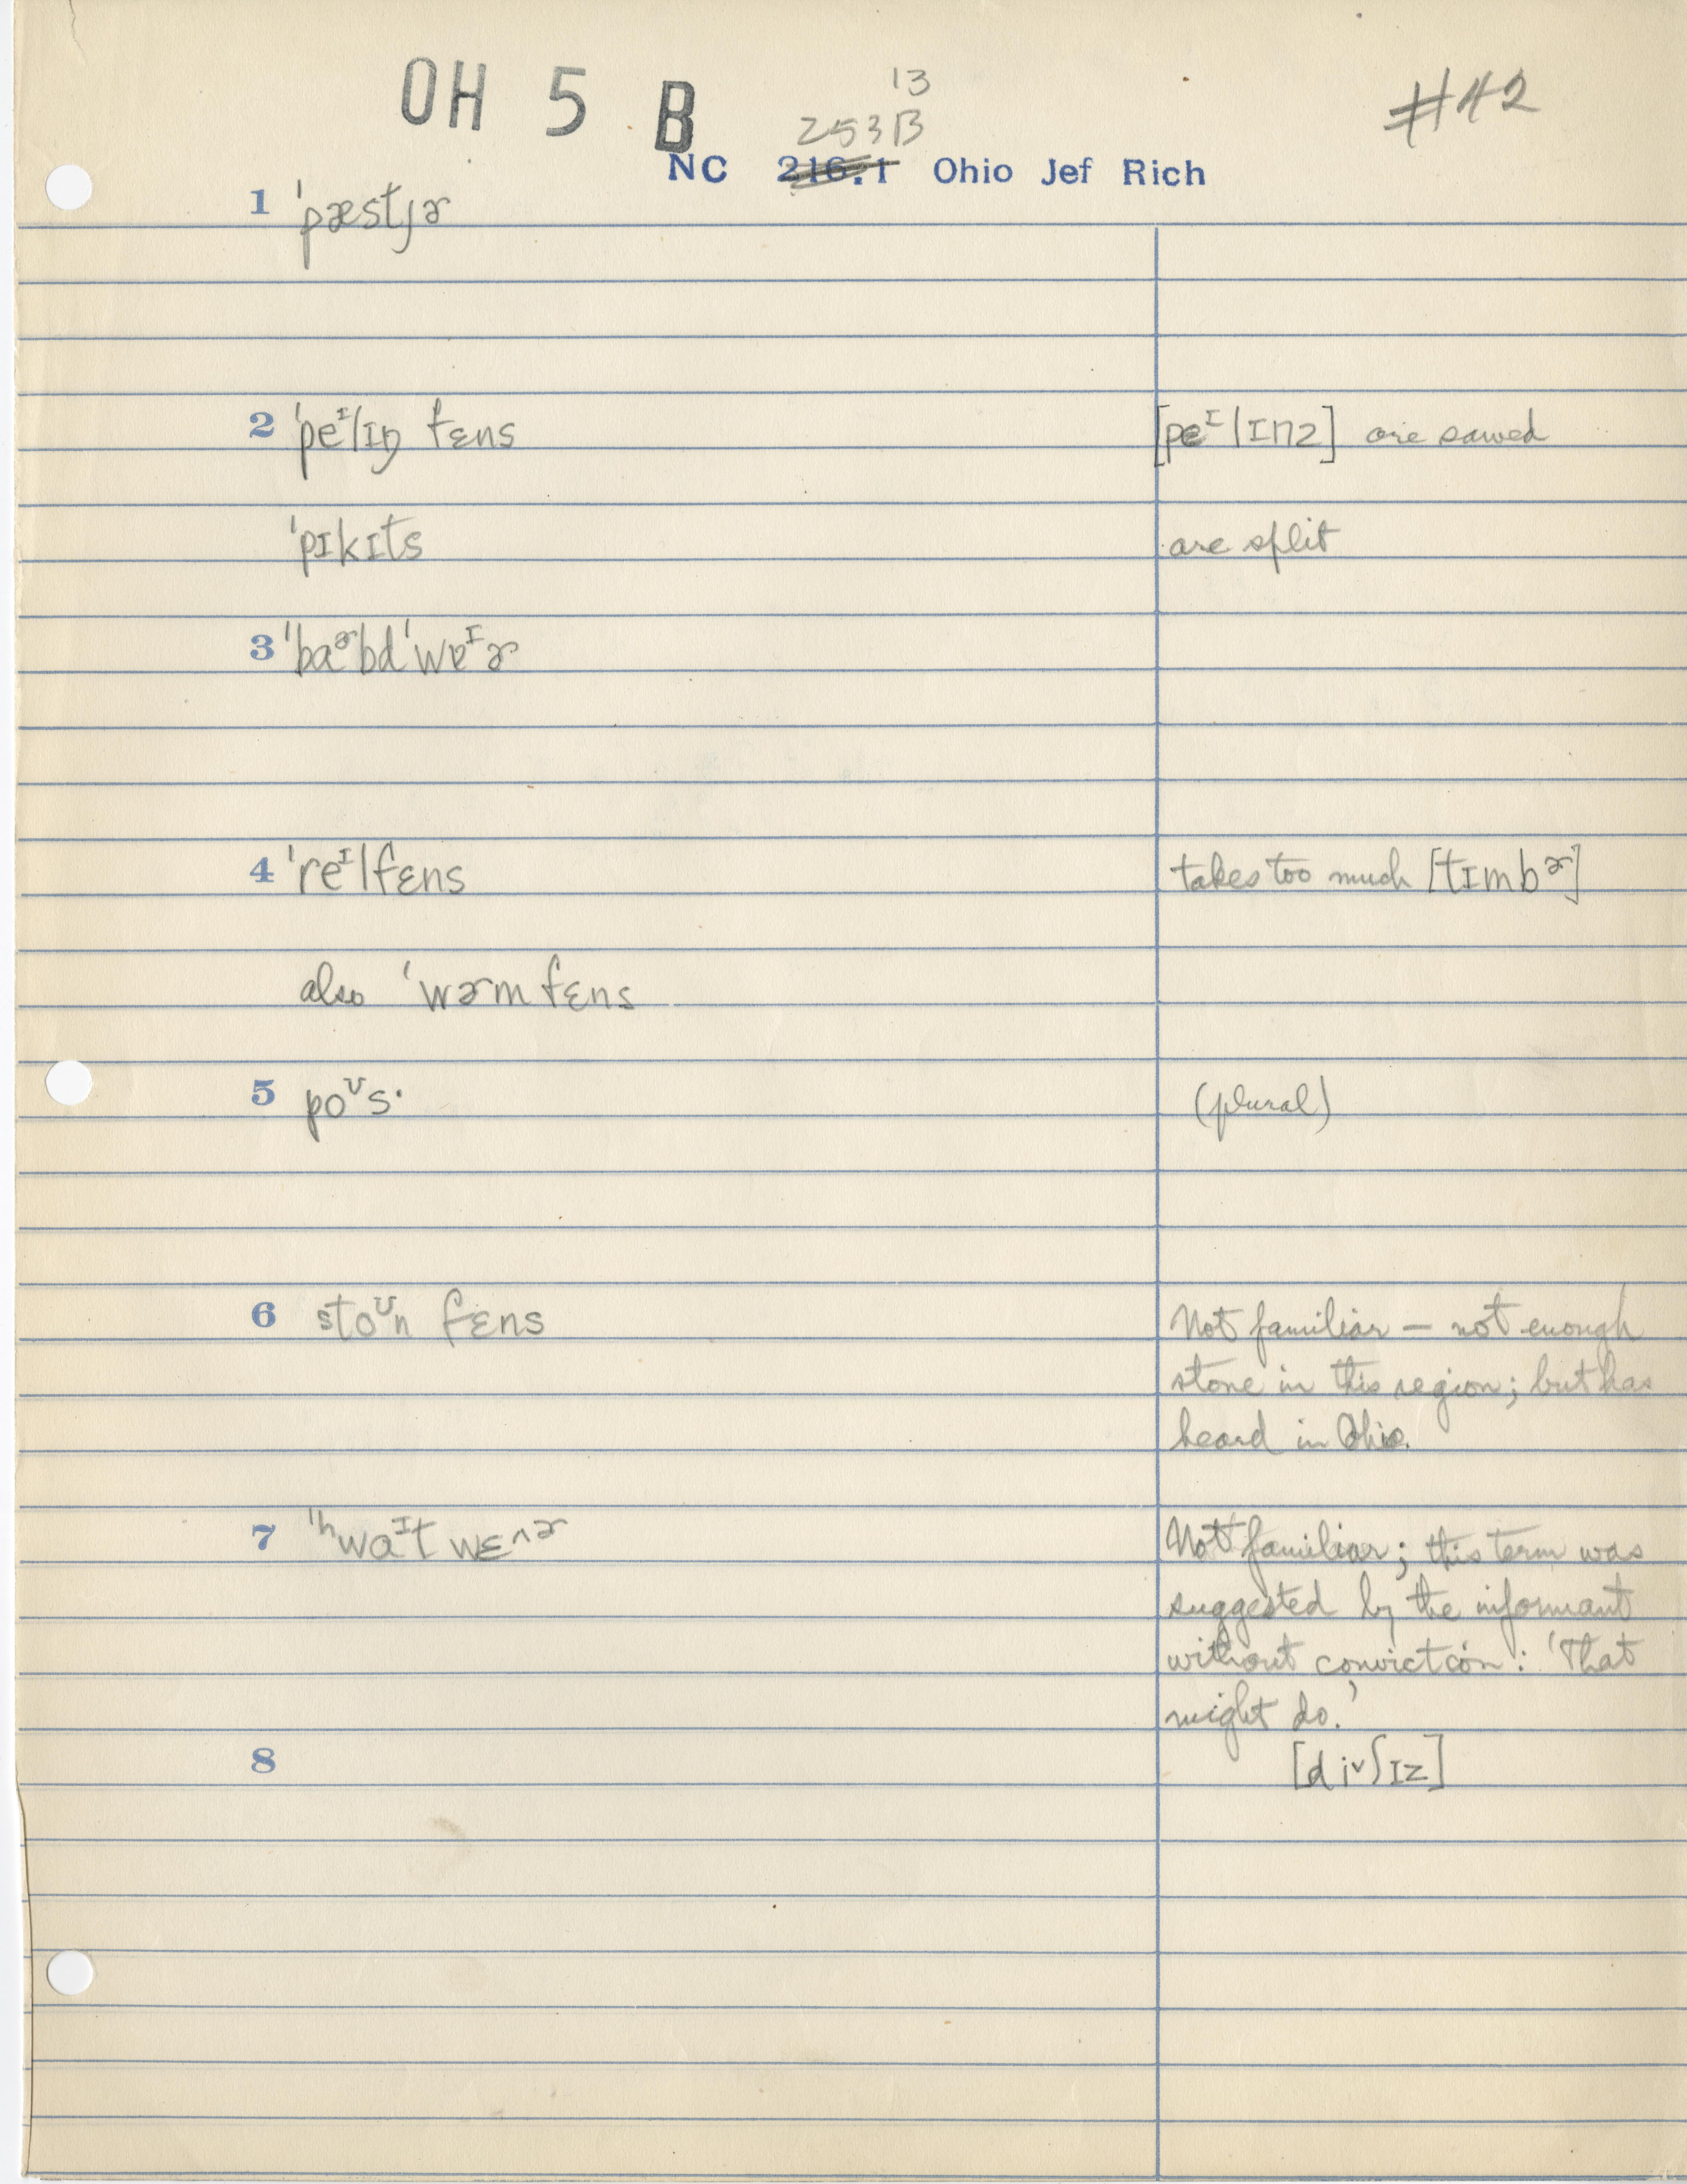 OH 5 B 13 #42
253B
NC 216.1 Ohio Jef Rich
1 ˈpæstʃɚ
2 ˈpeᶦlɪŋ fɛns [peᶦlɪnz] are sawed
ˈpɪkɪts are split
3 ˈbaᵊ˞bdˈwɐᶦɚ
4 ˈreᶦlfɛns takes too much [tɪmbɚ]
also ˈwɚm fɛns
5 poᶷs· (plural)
6 stoᶷn fɛns Not familiar – not enough
stone in this region; but has
heard in Ohio.
7 ˈʰwaᶦt wɛ^ɚ Not familiar; this term was
suggested by the informant
without conviction: 'That
might do.'
8 [di˅ʃɪz]